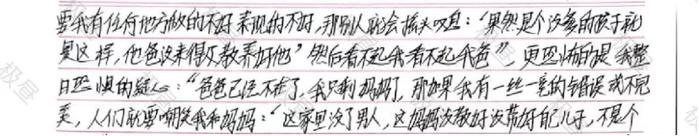 要我有任何地方做的不好表现的不好,那别人就会摇头叹息:“果然是个没爹的孩子就
是这样,他爸没来得及教养好他”然后看不起我看不起我爸”,更恐怖的是我整
日恐惧的疑心:“爸爸已经不在了,我只剩妈妈了,那如果我有一丝一毫的错误或不完
美,人们就要嘲笑我和妈妈:“这家里没了男人,这妈妈没教好没带好自己儿子,不是个